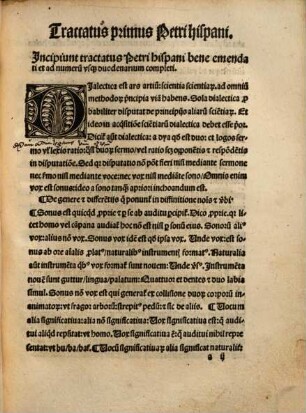 Tractatus primus Petri hispani.
Incipiunt tractatus Petri hispani bene emenda
ti et ad numerũ vsq̃ duodenarium completi.
Dialectica est ars artiũ: sciẽtia scientiaꝝ, ad omniũ
methodoꝝ pͥncipia viã habens. Sola dialectica p̱
babiliter disputat de principijs aliarũ sciẽtiaꝝ. Et
ideo in acq̃sitiõe sciẽtiarũ dialectica debet esse poꝛ.
Dicit̃ aũt dialectica: a dya qđ est duo: et logos ser
mo vl̓ lexis ratio: q̃si duoꝝ sermo/vel ratio sc̓ꝫ opponẽtis ⁊ respõdẽtis
in disputatiõe. Sed qꝛ disputatio nõ põt fieri nisi mediante sermone
nec sermo nisi mediante voce: nec vox nisi mediãte sono: Omnis enim
vox est sonus: ideo a sono tanq̃ꝫ a priori inchoandum est.
De genere ⁊ differẽtijs q̃ ponunt̃ in diffinitione nois ⁊ v̓bi
Sonus est quicqđ ꝓprie ⁊ ꝑ se ab auditu ꝑcipit̃. Dico ꝓprie, qꝛ
licet homo vel cãpana audiat̃ hoc nõ est nisi ꝑ sonũ eius. Sonoꝝ ali⁹
vox: alius nõ vox. Sonus vox idẽ est qđ ipsa vox. Unde vox: est so
nus ab ore aĩalis ꝓlat⁹, naturalib⁹ instrument̃ format⁹. Naturalia
aũt instrumẽta qͥb⁹ vox format̃ sunt nouem: Unde v̓s. Instrumẽta
nouẽ sunt guttur/lingua/palatum: Quattuor et dentes ⁊ duo labia
simul. Sonus nõ vox est qui generat̃ ex collisione duoꝝ corporũ in-
animatoꝝ: vt fragor arboꝝ: strepit⁹ pedũ: ⁊ sic de alijs. Vocum
alia significatiua: alia nõ significatiua: Vox significatiua est: que au-
ditui aliqđ rep̃sẽtat: vt homo. Vox nõ significatiua ẽ: q̃ auditui nihil repre
sentat: vt bu/ba/baf. Vocũ significatiuaꝝ alia significat naturalit̓
a ij